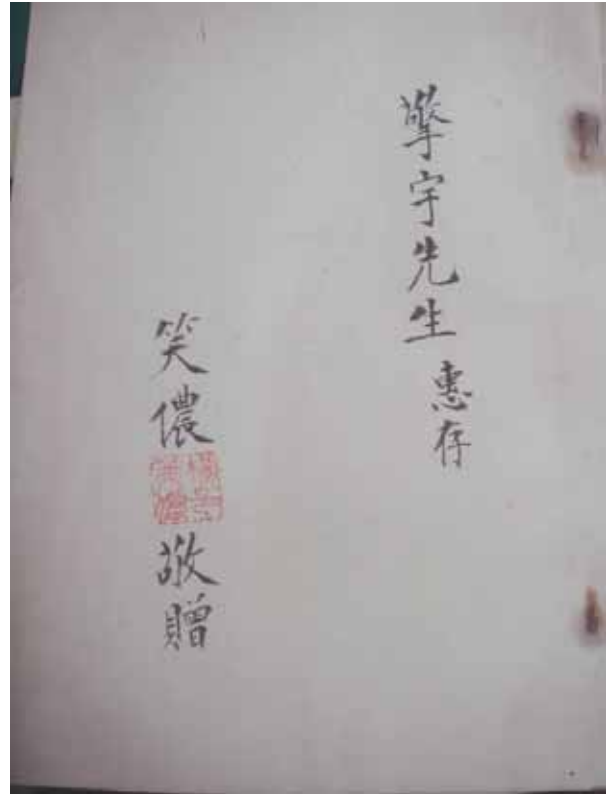 擎宇先生 惠存
笑儂 敬贈